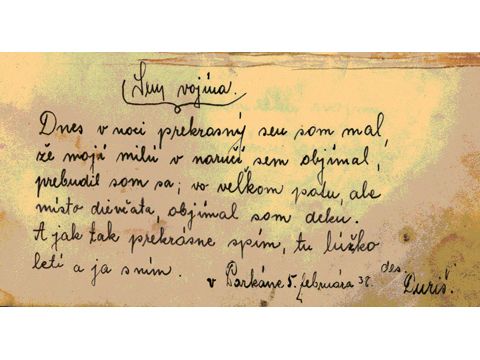 Sny vojína.
Dnes v noci prekrasný sen som mal,
že moju milu v naručí sem objímal,
prebudil som sa; vo veľkom potu, ale
místo dievčata, objímal som deku.
A jak tak prekrásne spím, tu lúžko
letí a ja s ním.
v Parkáne 5. februára 38. des. Ďuriš.